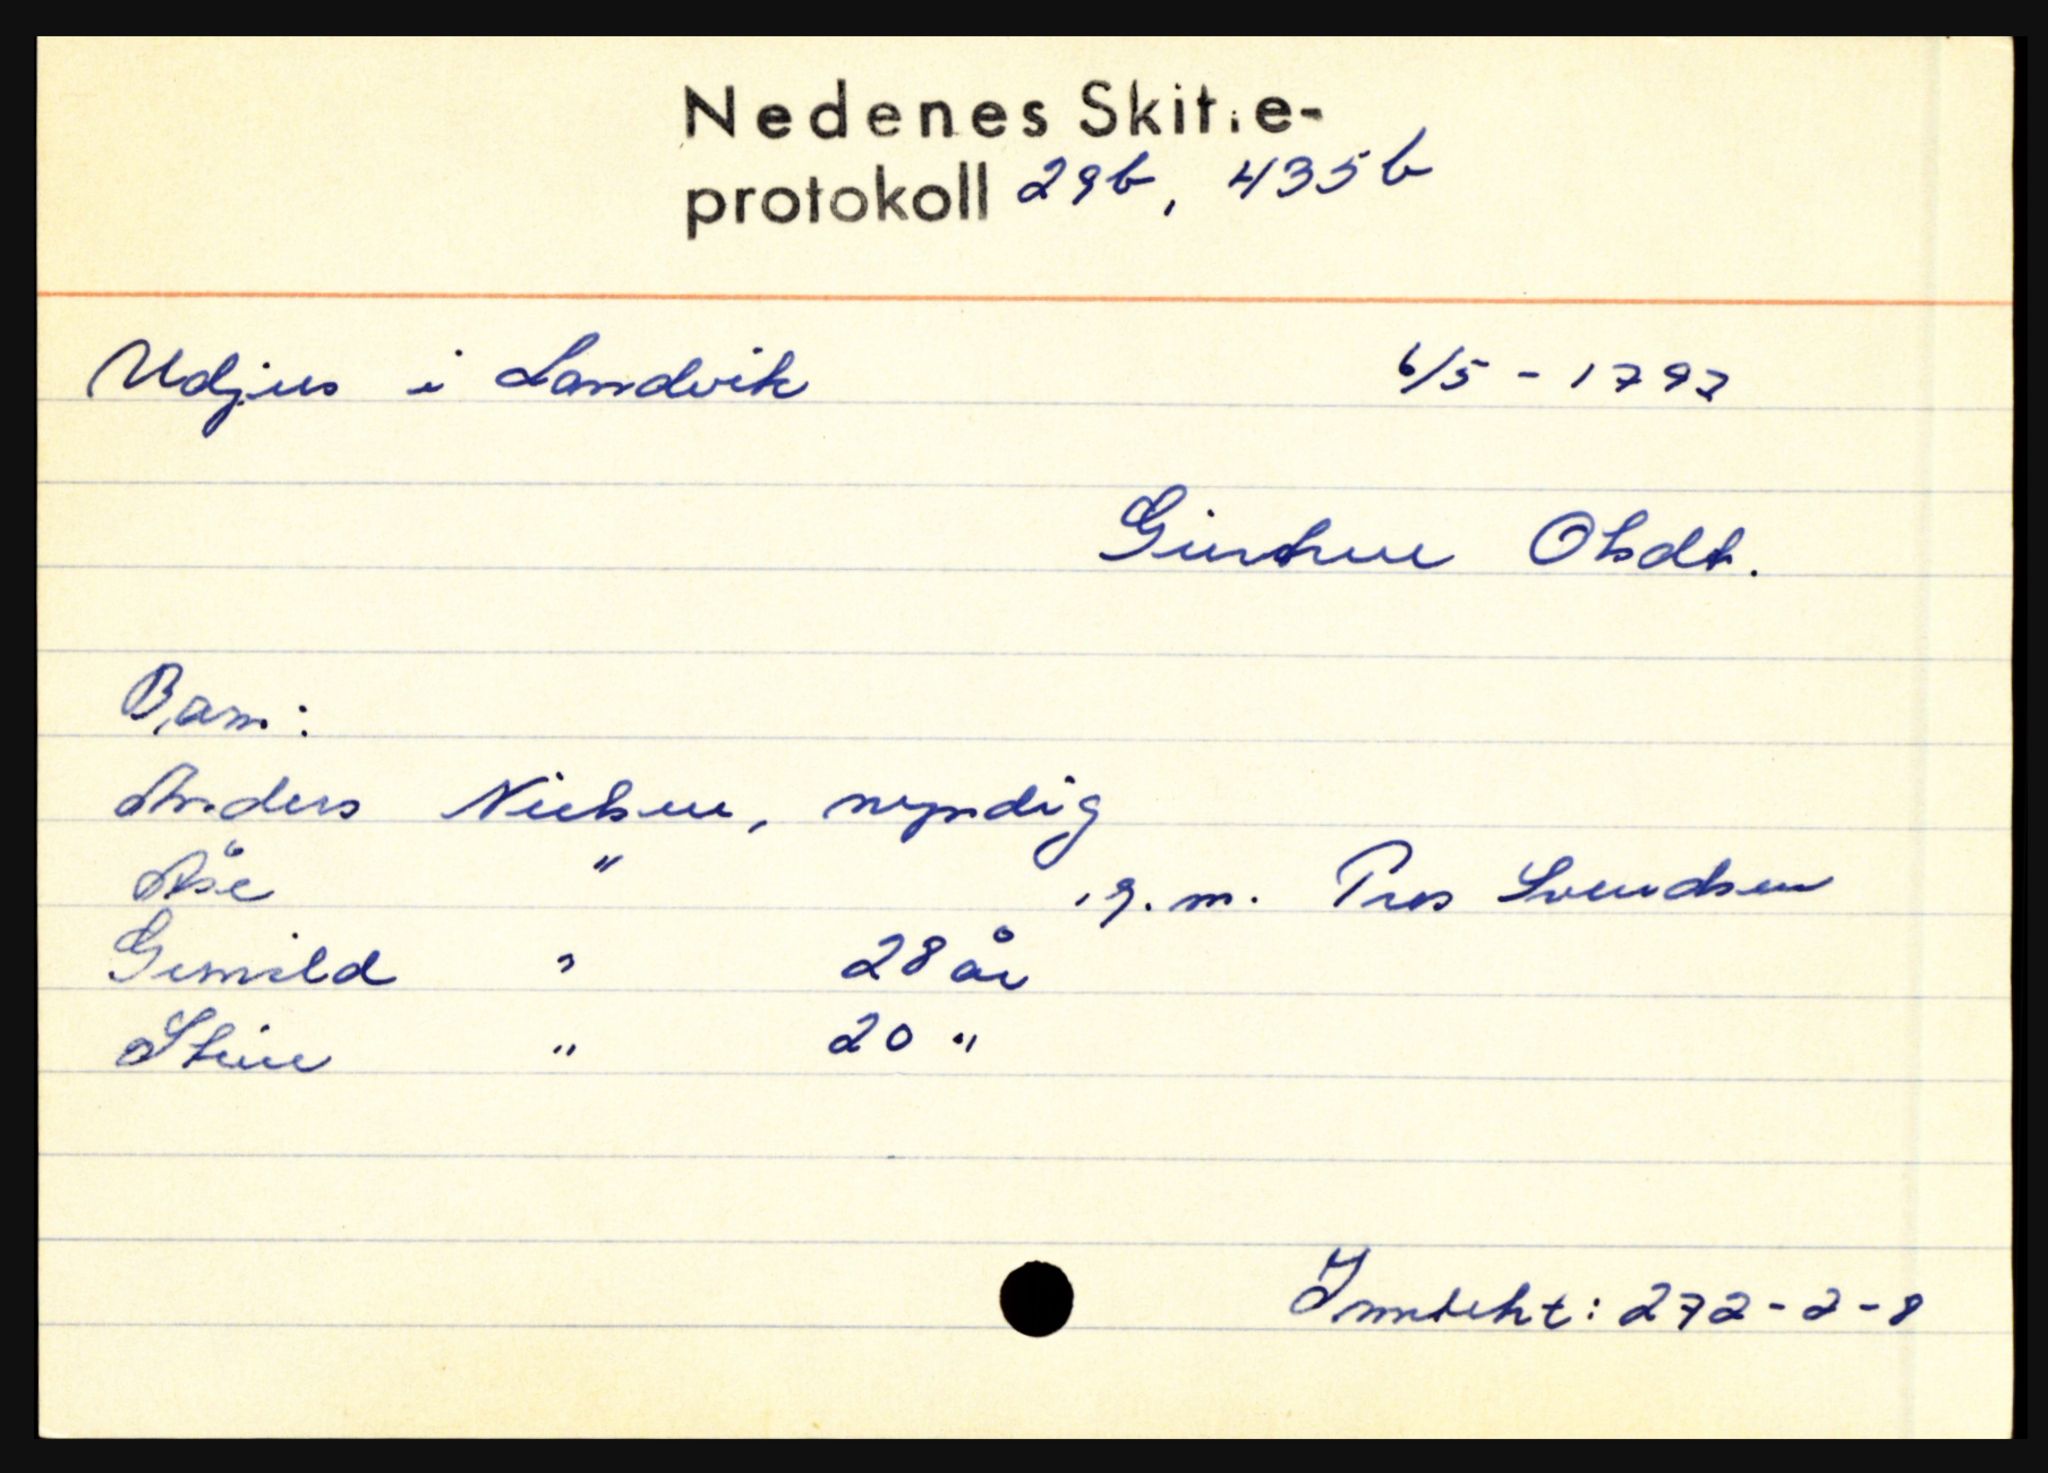 Nedenes Skifte-
protokoll 29b, 435b
Udjus i Landvik 6/5 - 1793
Olsdt.
Barn:
Anders Nielsen, myndig
Åse " , g. m. Tros Svendsen
Gunild " 28 år
Stine " 20 "
Inntekt: 272-2-8